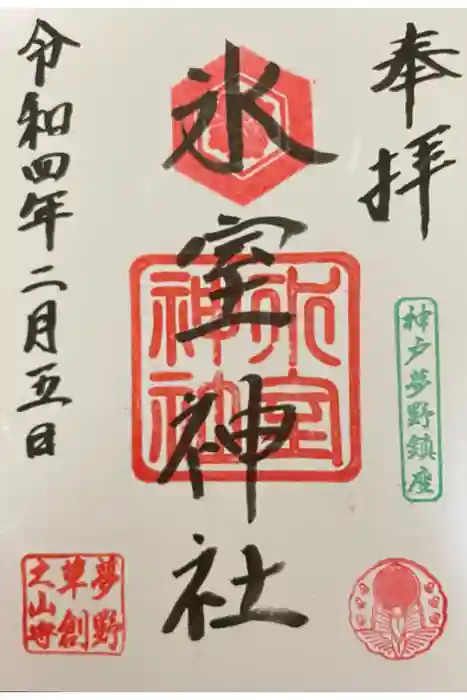 奉拝
神戸夢野鎮座
氷室神社
氷室
神社
令和四年二月五日
夢野
草創
之山